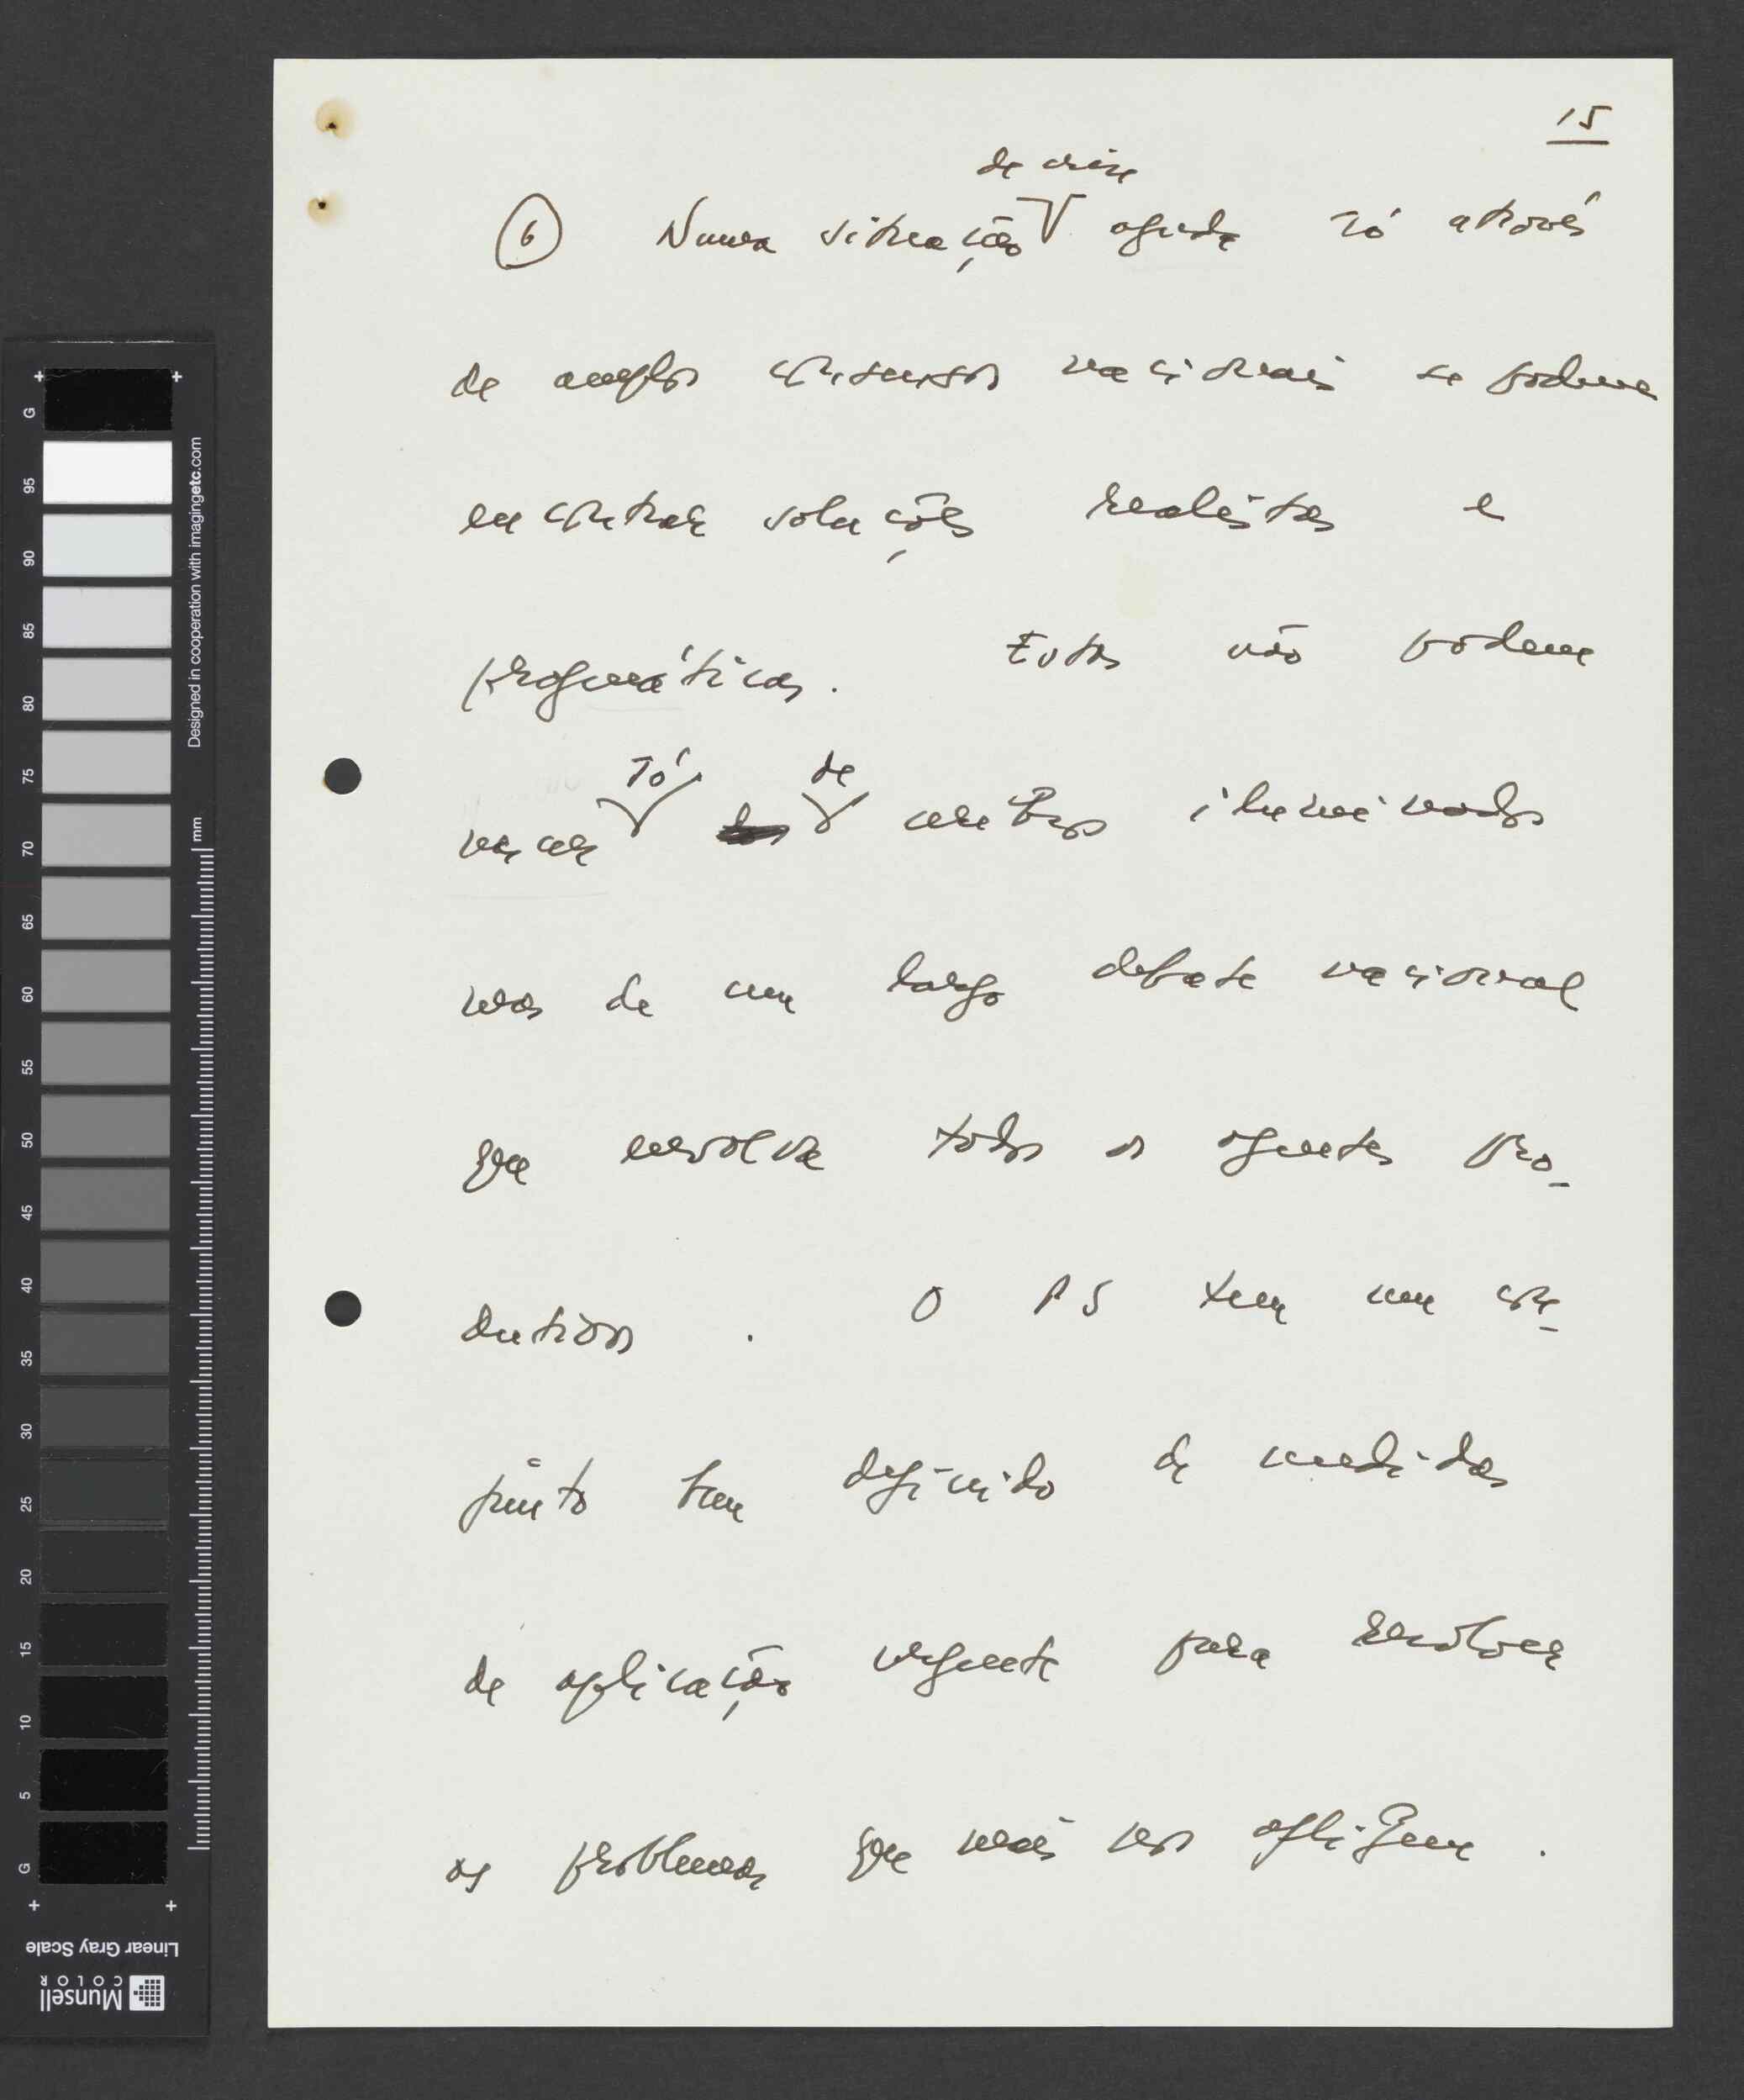 15
de crise
6 Numa situação aguda só através
de amplos consensos nacionais se podem
encontrar soluções realistas e
pragmáticas. Estas não podem
só de
nascer cérebros iluminados
mas de um largo debate nacional
que envolva todos os agentes pro-
dutivos . O PS tem um con-
junto bem definido de medidas
de aplicação urgente para resolver
os problemas que mais nos afligem .
G 95 90 85 80 75 70 65 60 55 50 45 40 35 30 25 20 15 10 5 G
Designed in cooperation with imagingetc.com
mm
Linear Gray Scale
Munsell
COLOR